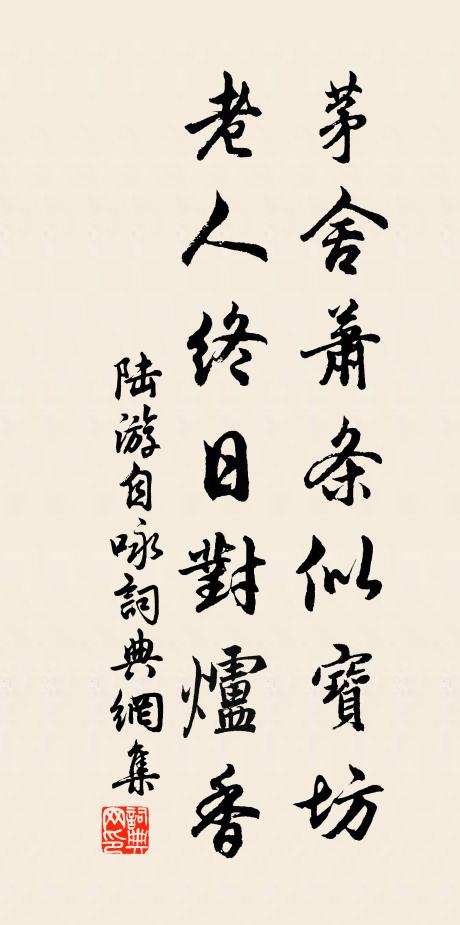 茅舍蕭条似寶坊
老人终日對爐香
陆游自咏詞典網集
詞典网印